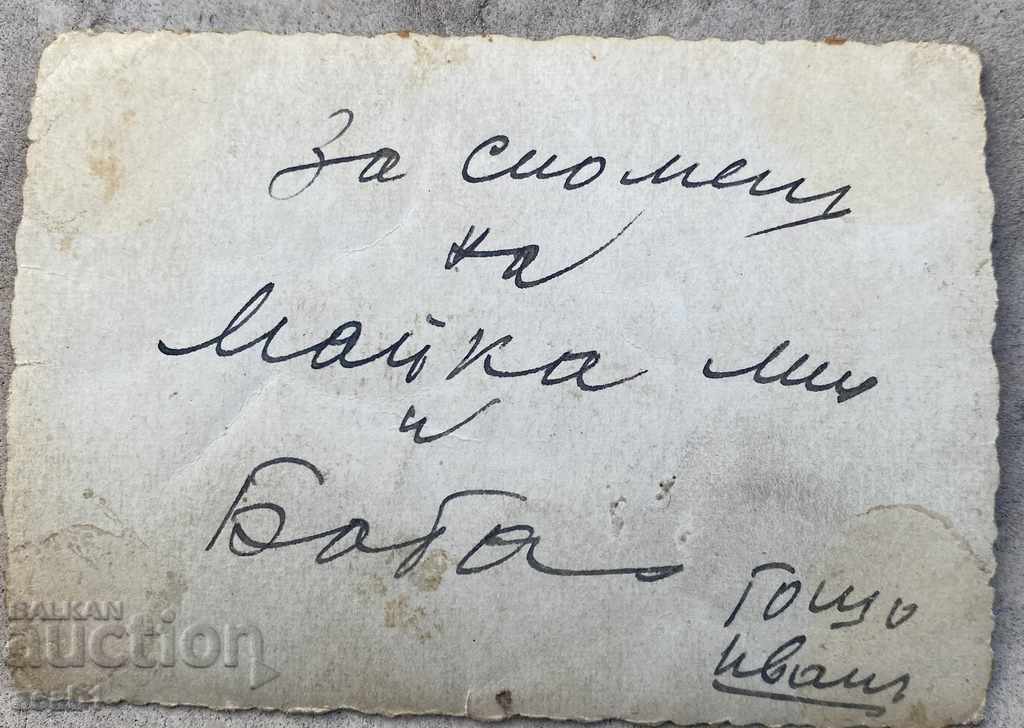 За спомен
на
Майка ми
и
Баба
Гошо
Иван
BALKAN
auction